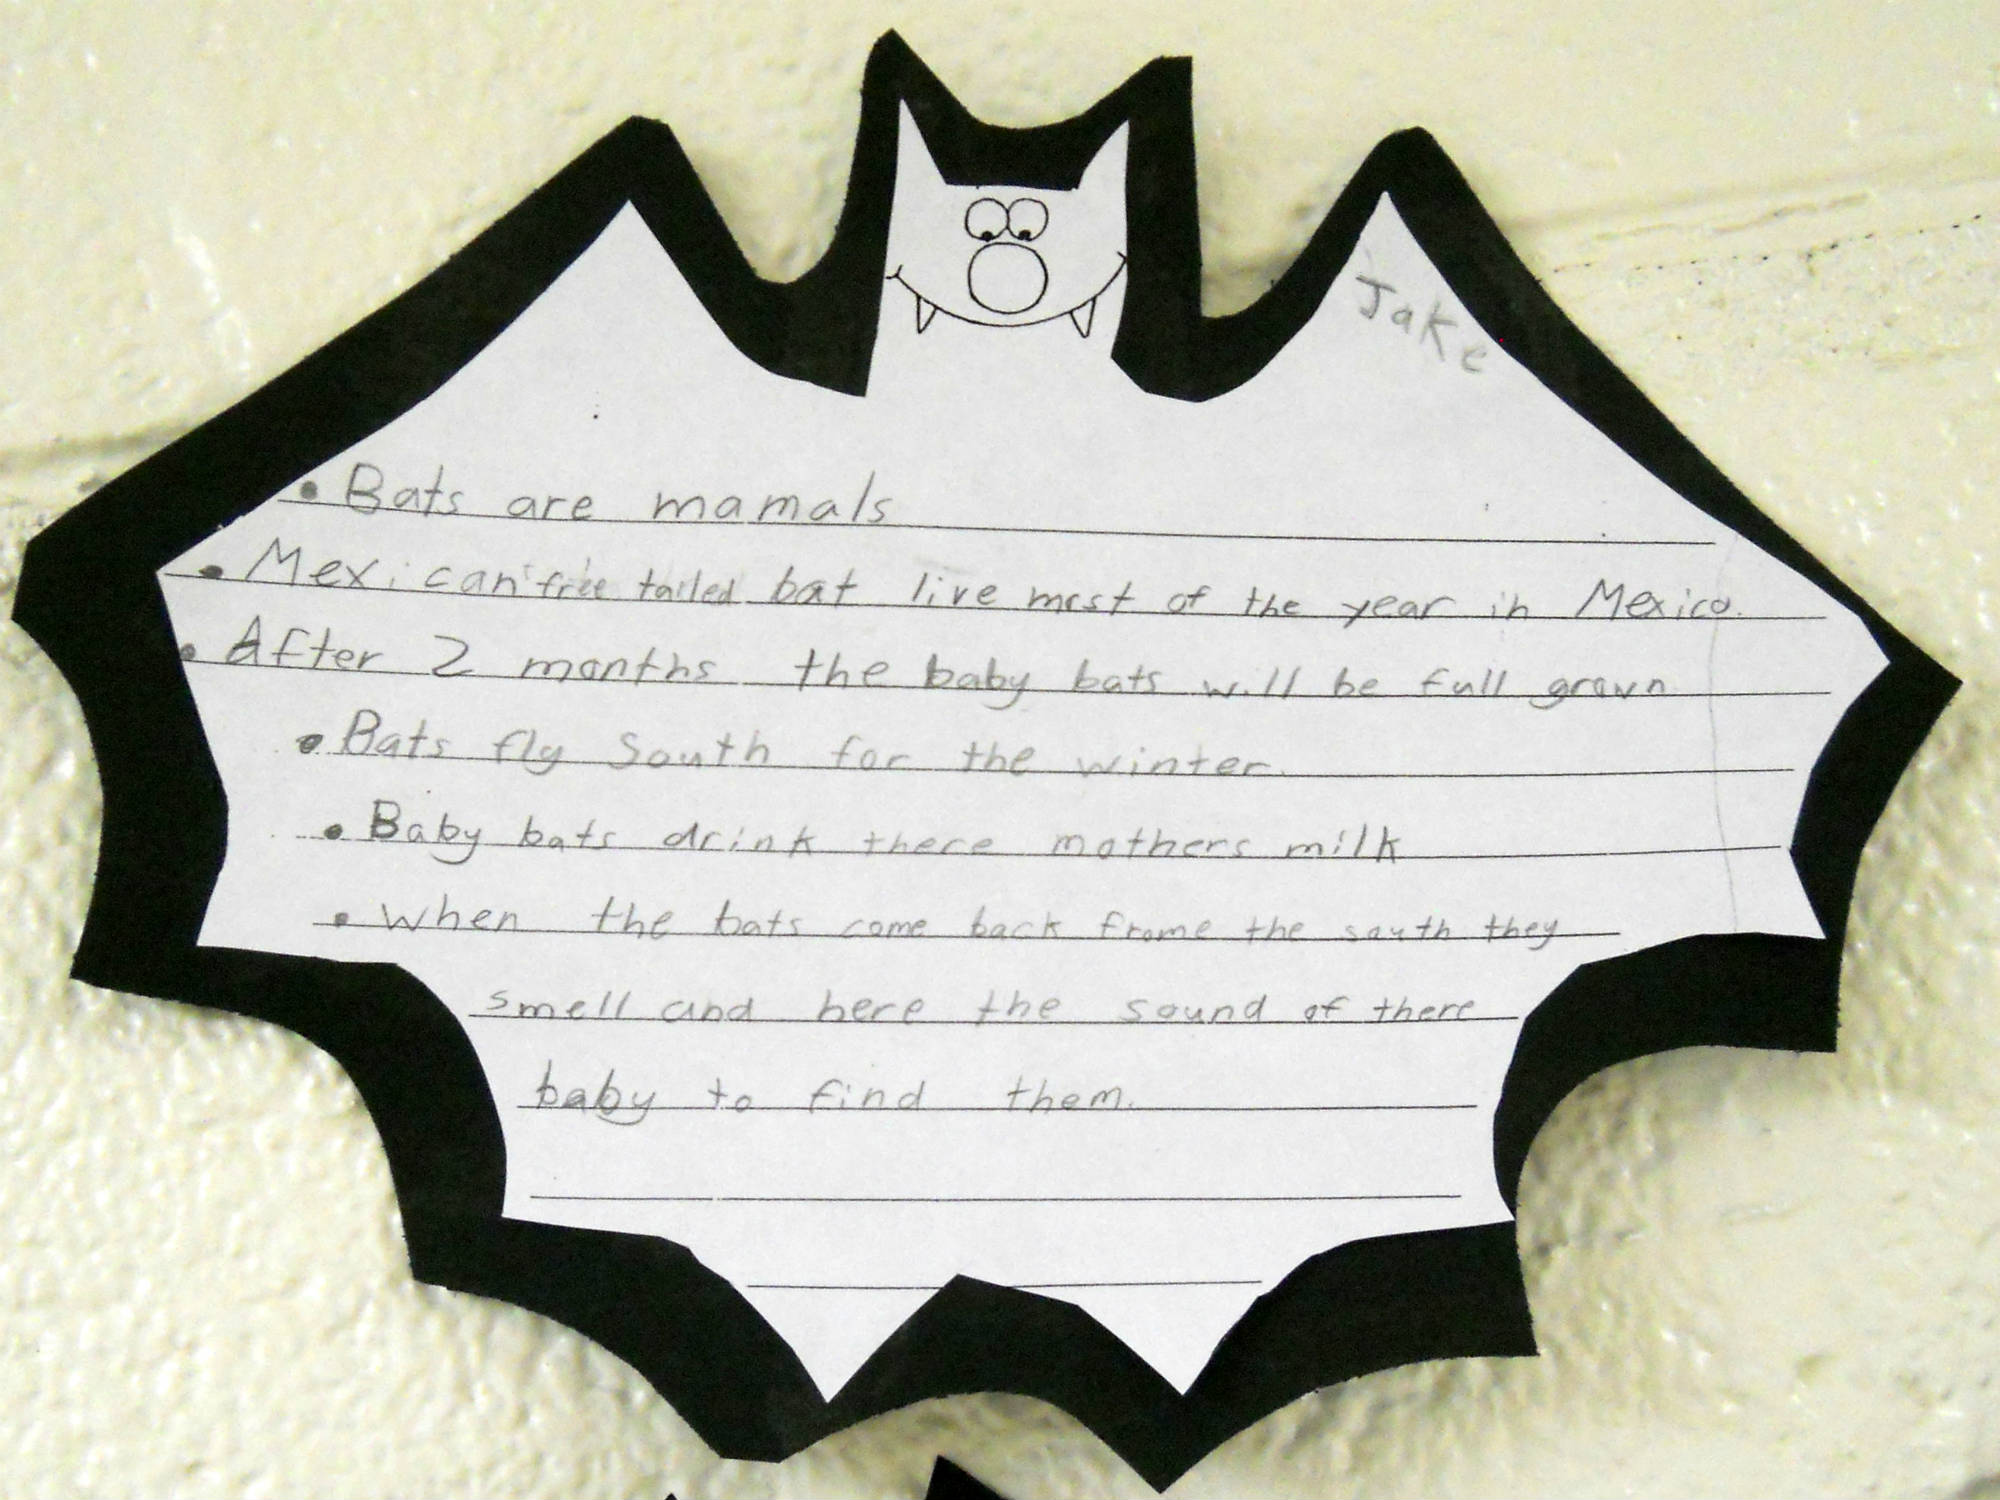 Jake
• Bats are mamals
• Mexican free tailed bat live most of the year in Mexico.
• After 2 months the baby bats will be full grown
• Bats fly South for the winter.
• Baby bats drink there mothers milk
• When the bats come back frome the south they
smell and here the sound of there
baby to find them.